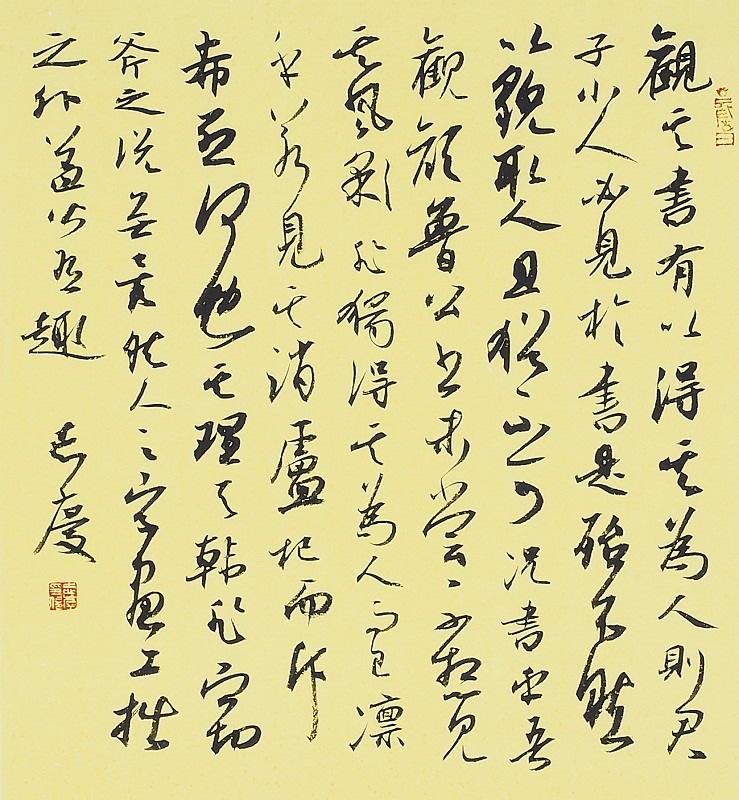 觀其書有以得其為人則君
子小人必見於書是殆不然
以貌取人且猶不可況書乎吾
觀顏魯公書未嘗不想見
其風彩非獨得其為人而已凜
乎若見其誚盧杞而叱
希烈何也其理與韓非竊
斧之說無異然人之字畫工拙
之外蓋皆有趣 志慶